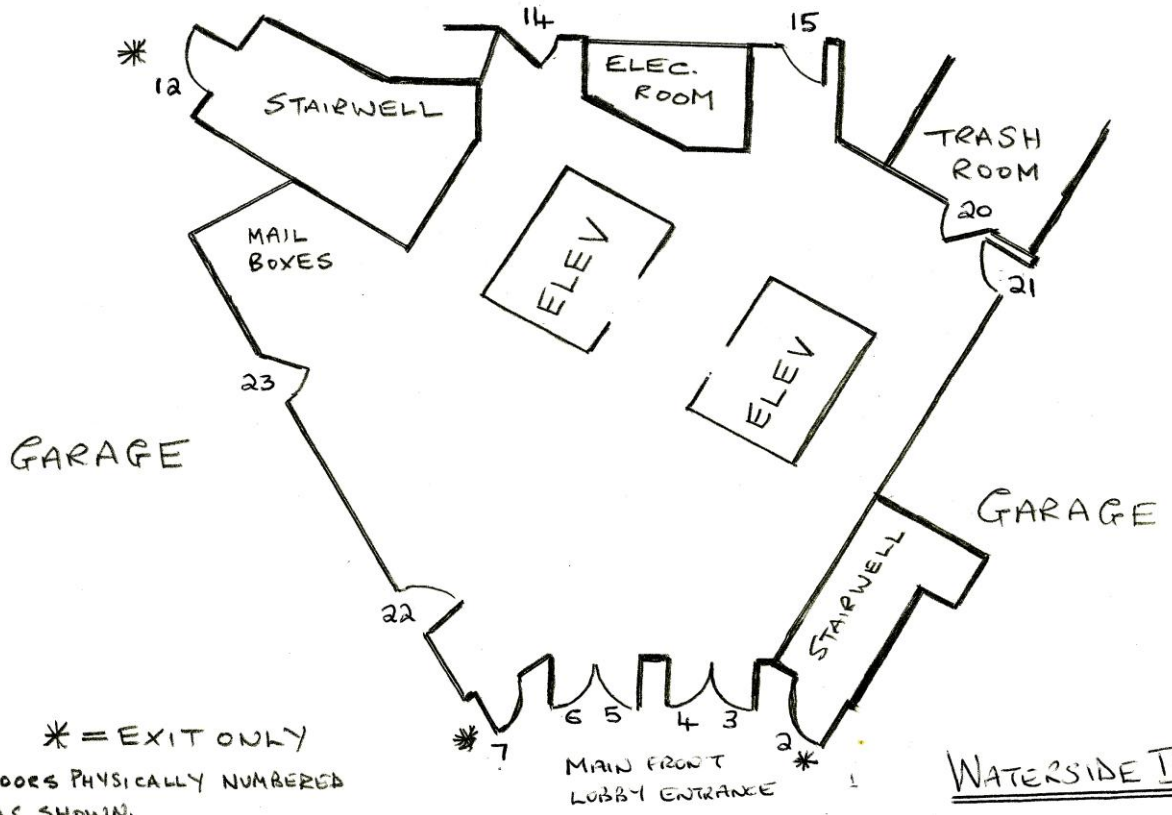 14
15
*
12
STAIRWELL
ELEC.
ROOM
TRASH
ROOM
20
21
MAIL
BOXES
ELEV
ELEV
23
GARAGE
GARAGE
STAIRWELL
22
6 5 4 3
2
* 7
*
* = EXIT ONLY
MAIN FRONT
LOBBY ENTRANCE
DOORS PHYSICALLY NUMBERED
AS SHOWN.
WATERSIDE I